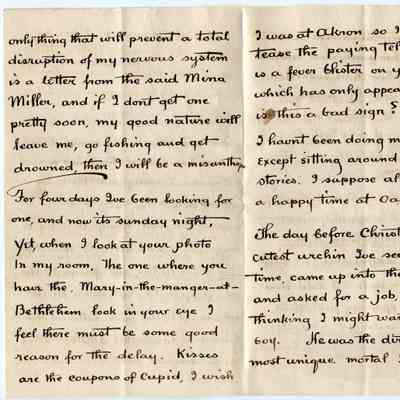 only thing that will prevent a total
disruption of my nervous system
is a letter from the said Mina
Miller, and if I dont get one
pretty soon, my good nature will
leave me, go fishing and get
drowned, then I will be a misanthrope
For four days Ive been looking for
one, and now its sunday night.
Yet, when I look at your photo
In my room, The one where you
have the. Mary-in-the-manger-at-
Bethlehem look in your eye I
feel there must be some good
reason for the delay. Kisses
are the coupons of Cupid, I wish
I was at Akron so I
tease the paying tel
is a fever blister on y
which has only appea
is this a bad sign?
I havnt been doing m
Except sitting around
stories. I suppose al
a happy time at Oa
The day before Christ
cutest urchin Ive see
time, came up into the
and asked for a job,
thinking I might wa
boy. He was the dir
most unique mortal